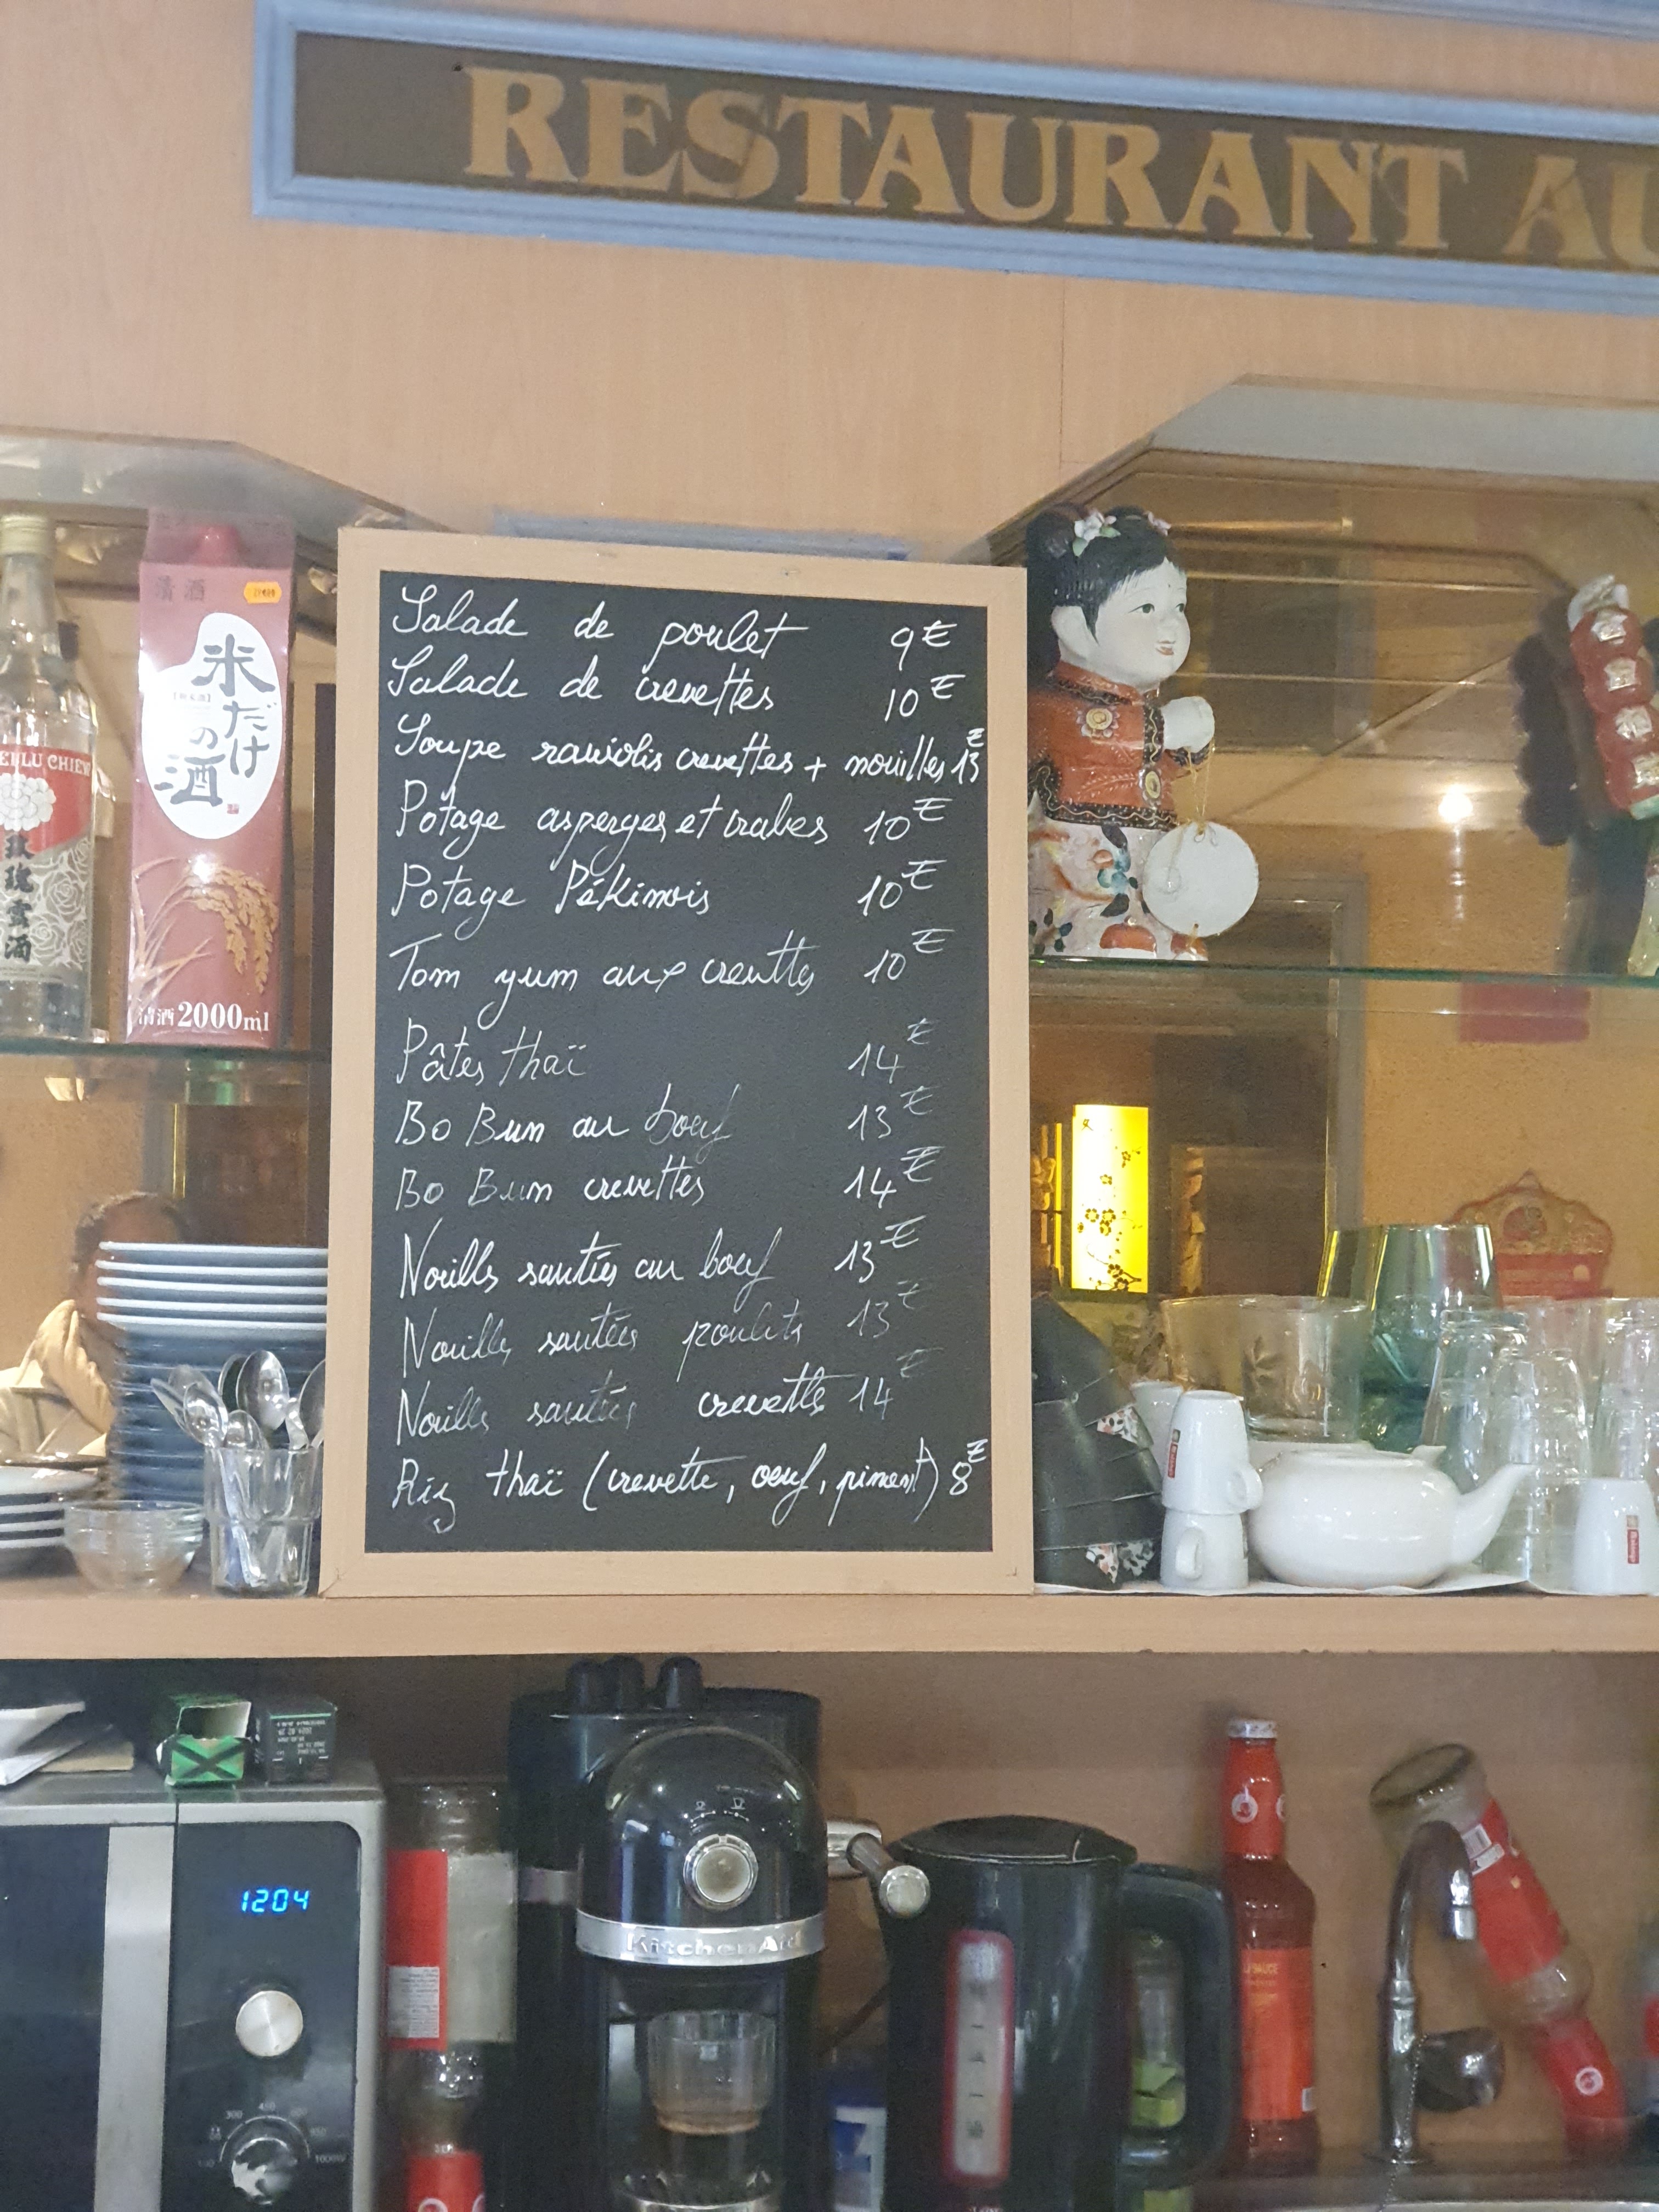 RESTAURANT AU
清酒
米だけ
の酒
清酒 2000ml
CHIEW
玫瑰露酒
Salade de poulet 9€
Salade de crevettes 10€
Soupe raviolis crevettes + nouilles 13€
Potage asperges et crabes 10€
Potage Pékinois 10€
Tom yum aux crevttes 10€
Pâtes thaï 14€
Bo Bun au boeuf 13€
Bo Bun crevettes 14€
Nouilles sautées au boeuf 13€
Nouilles sautées poulets 13€
Nouilles sautées crevettes 14€
Riz thaï (crevette, oeuf, piment) 8€
1204
KitchenAid
300
450
SAUCE